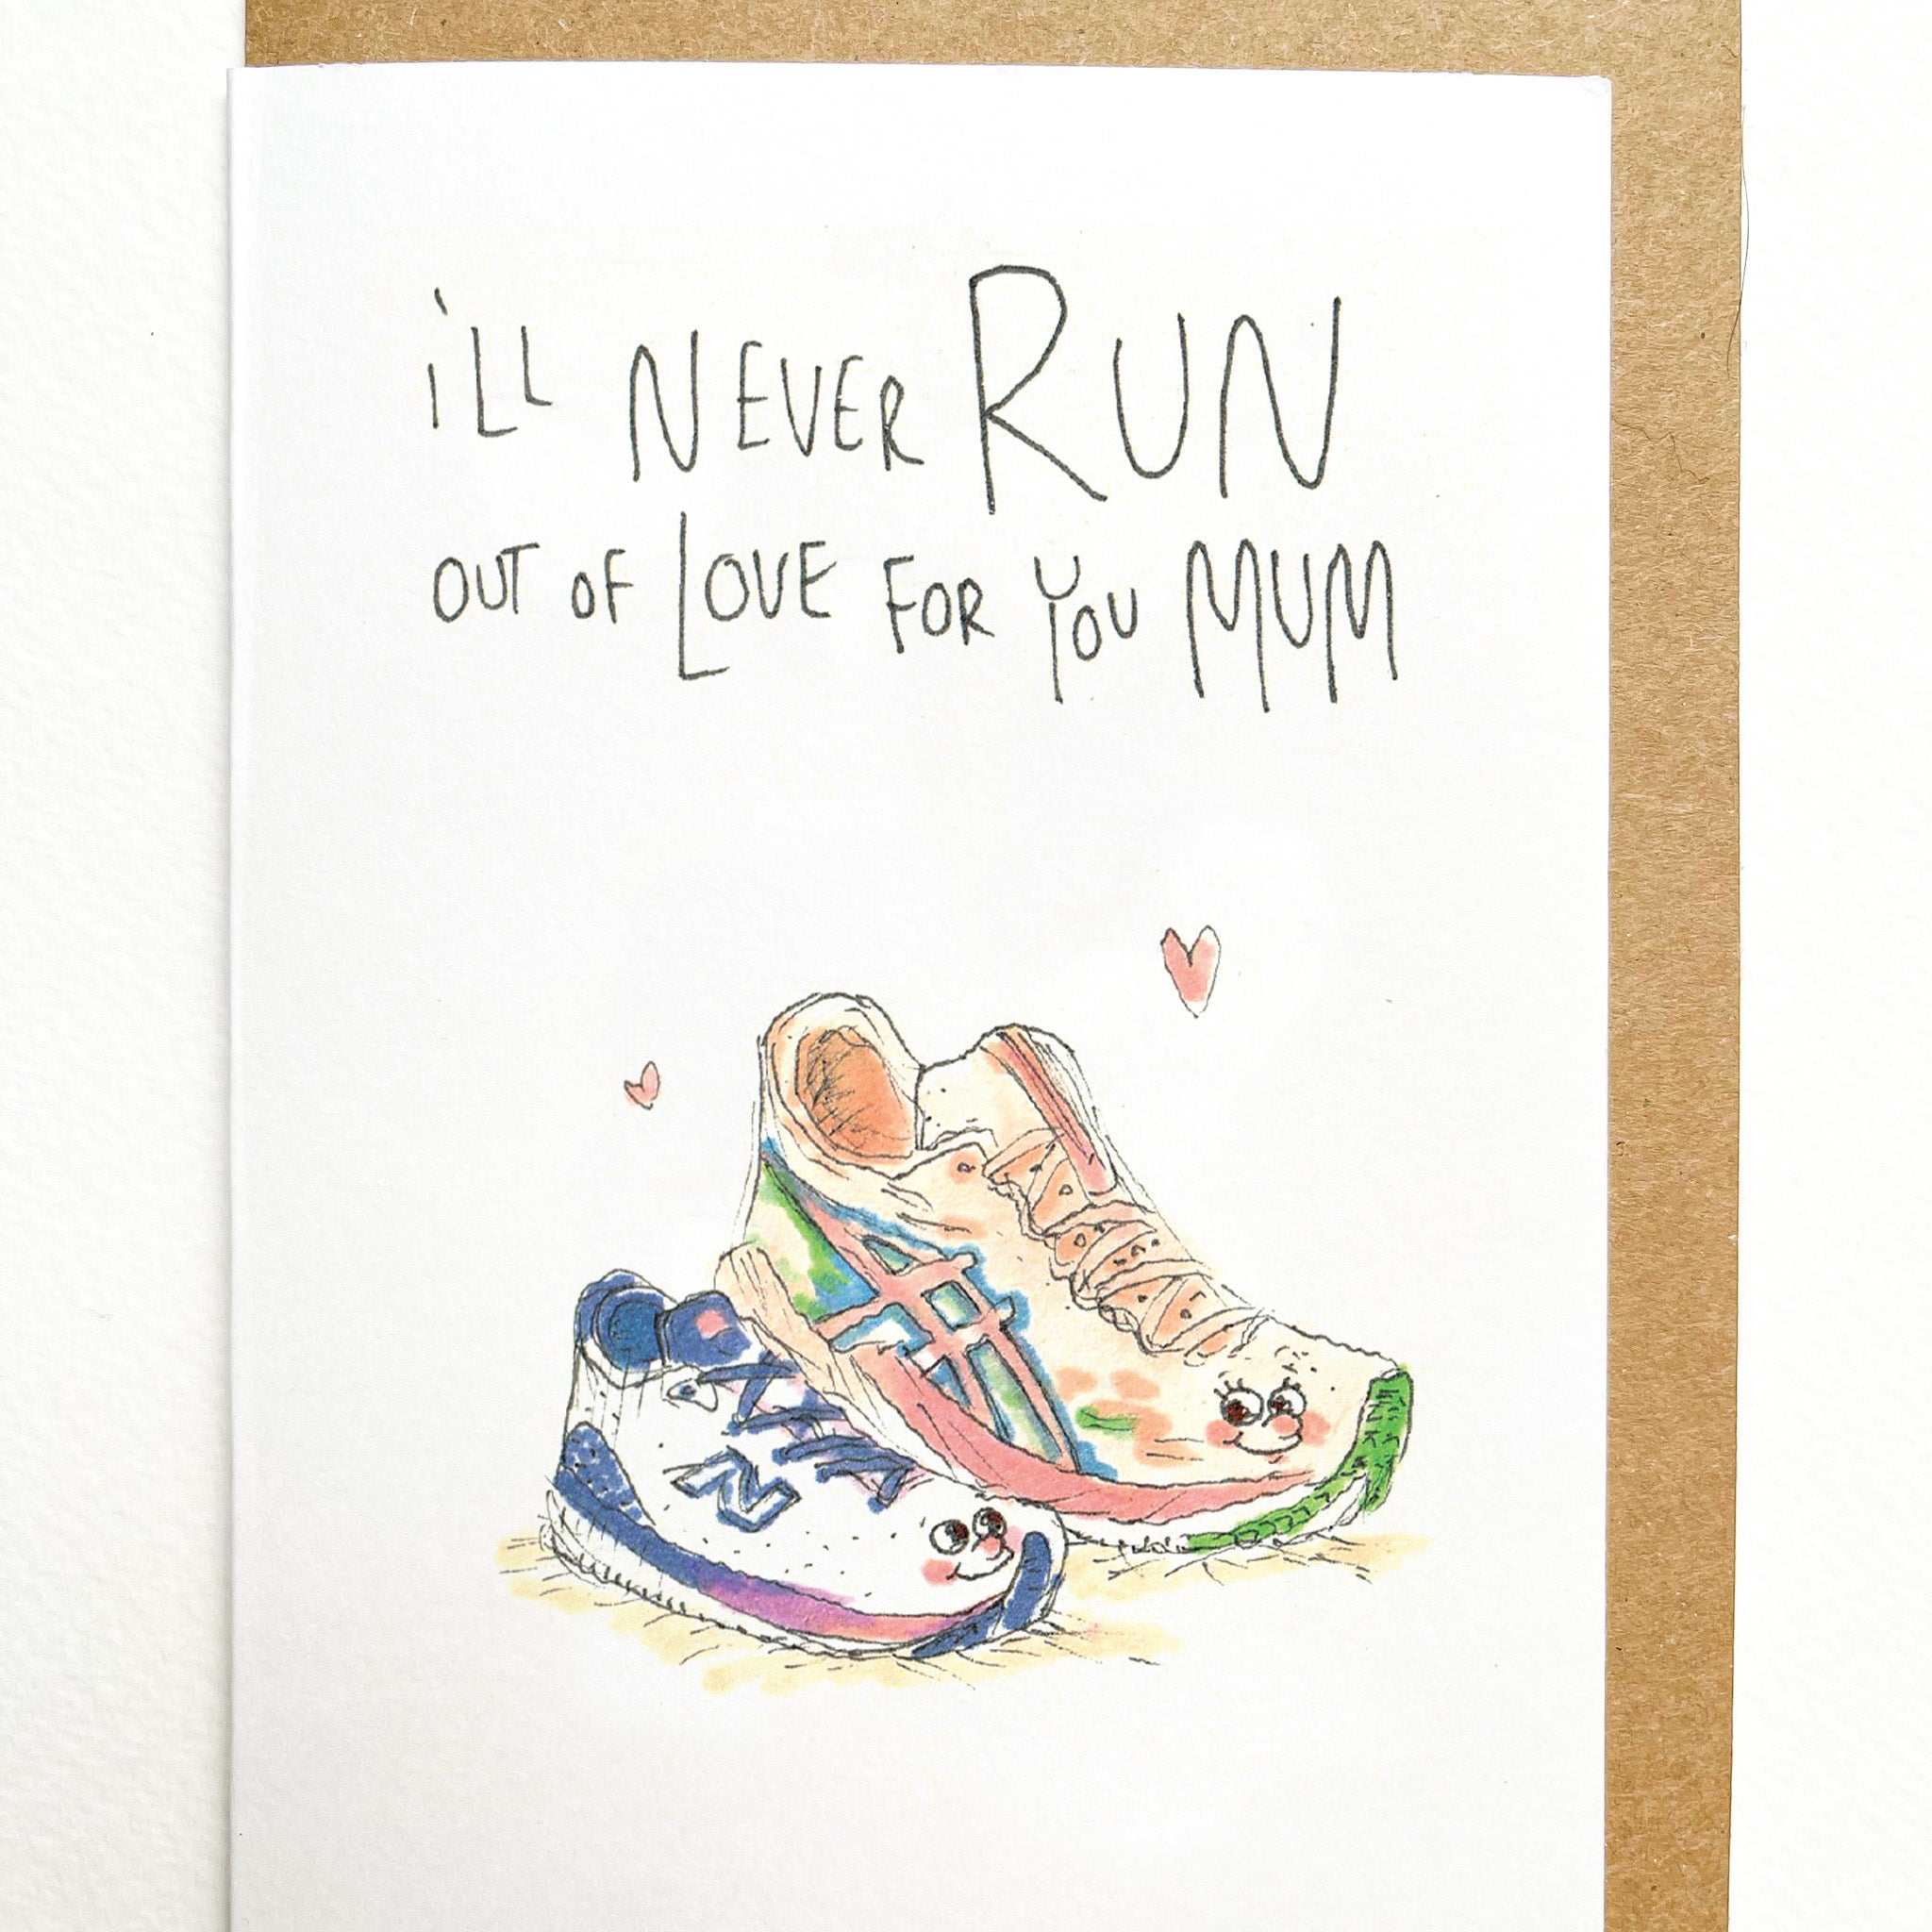 i'LL NEVER RUN
OUT OF LOVE FOR YOU MUM
N